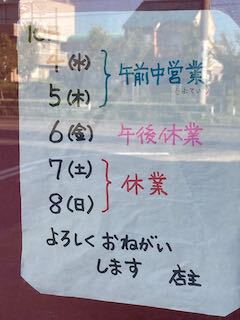 4(水) 午前中営業
5(木)
6(金) 午後休業
7(土) 休業
8(日)
よろしく おねがい
します 店主